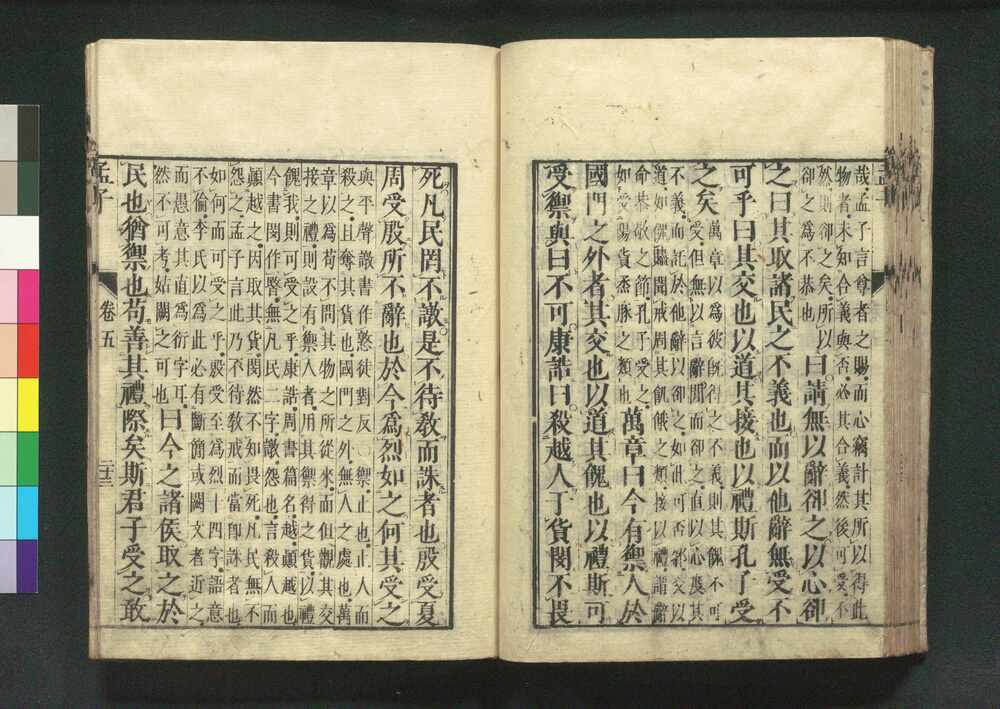 哉孟子言尊者之賜而心竊計其所以得此
物者未知合義與否必其合義然後可受不
然則卻之矣所以
卻之爲不恭也
曰請無以辭卻之以心卻
之曰其取諸民之不義也而以他辭無受不
可乎曰其交也以道其接也以禮斯孔子受
之矣
萬章以爲彼既得之不義則其餽不可
受但無以言辭間而卻之直以心度其
不義而託於他辭以卻之如此可否邪交以
道如餽贐聞戒周其飢餓之類接以禮謂辭
命恭敬之節孔子受之
如受陽貨烝豚之類也
萬章曰今有禦人於
國門之外者其交也以道其餽也以禮斯可
受禦與曰不可康誥曰殺越人于貨閔不畏
死凡民罔不譈是不待敎而誅者也殷受夏
周受殷所不辭也於今爲烈如之何其受之
與平聲譈書作憝徒對反○禦止也止人而
殺之且奪其貨也國門之外無人之處也萬
章以爲苟不問其物之所從來而但觀其交
接之禮則設有禦人者用其禦得之貨以禮
餽我則可受之乎康誥周書篇名越顚越也
今書閔作暋無凡民二字譈怨也言殺人而
顚越之因取其貨閔然不知畏死凡民無不
怨之孟子言此乃不待敎戒而當卽誅者也
如何而可受之乎殷受至爲烈十四字語意
不倫李氏以爲此必有斷簡或闕文者近之
而愚意其直爲衍字耳
然不可考姑闕之可也
曰今之諸侯取之於
民也猶禦也苟善其禮際矣斯君子受之敢
孟子
卷五
二十三